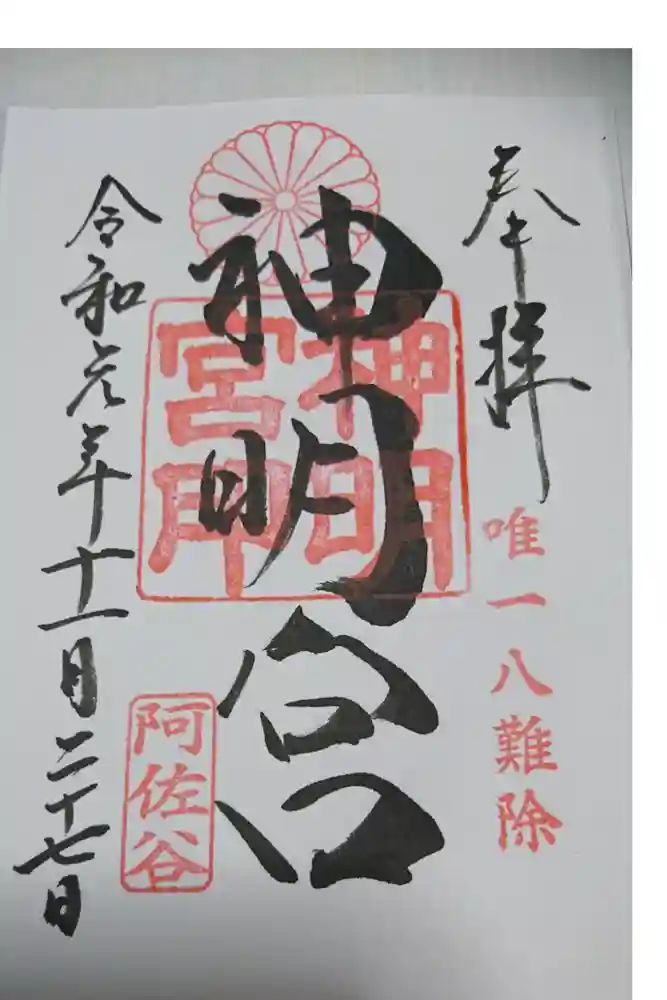 奉拝
唯一八難除
神明宮
神明
宮印
阿佐谷
令和元年十一月二十七日